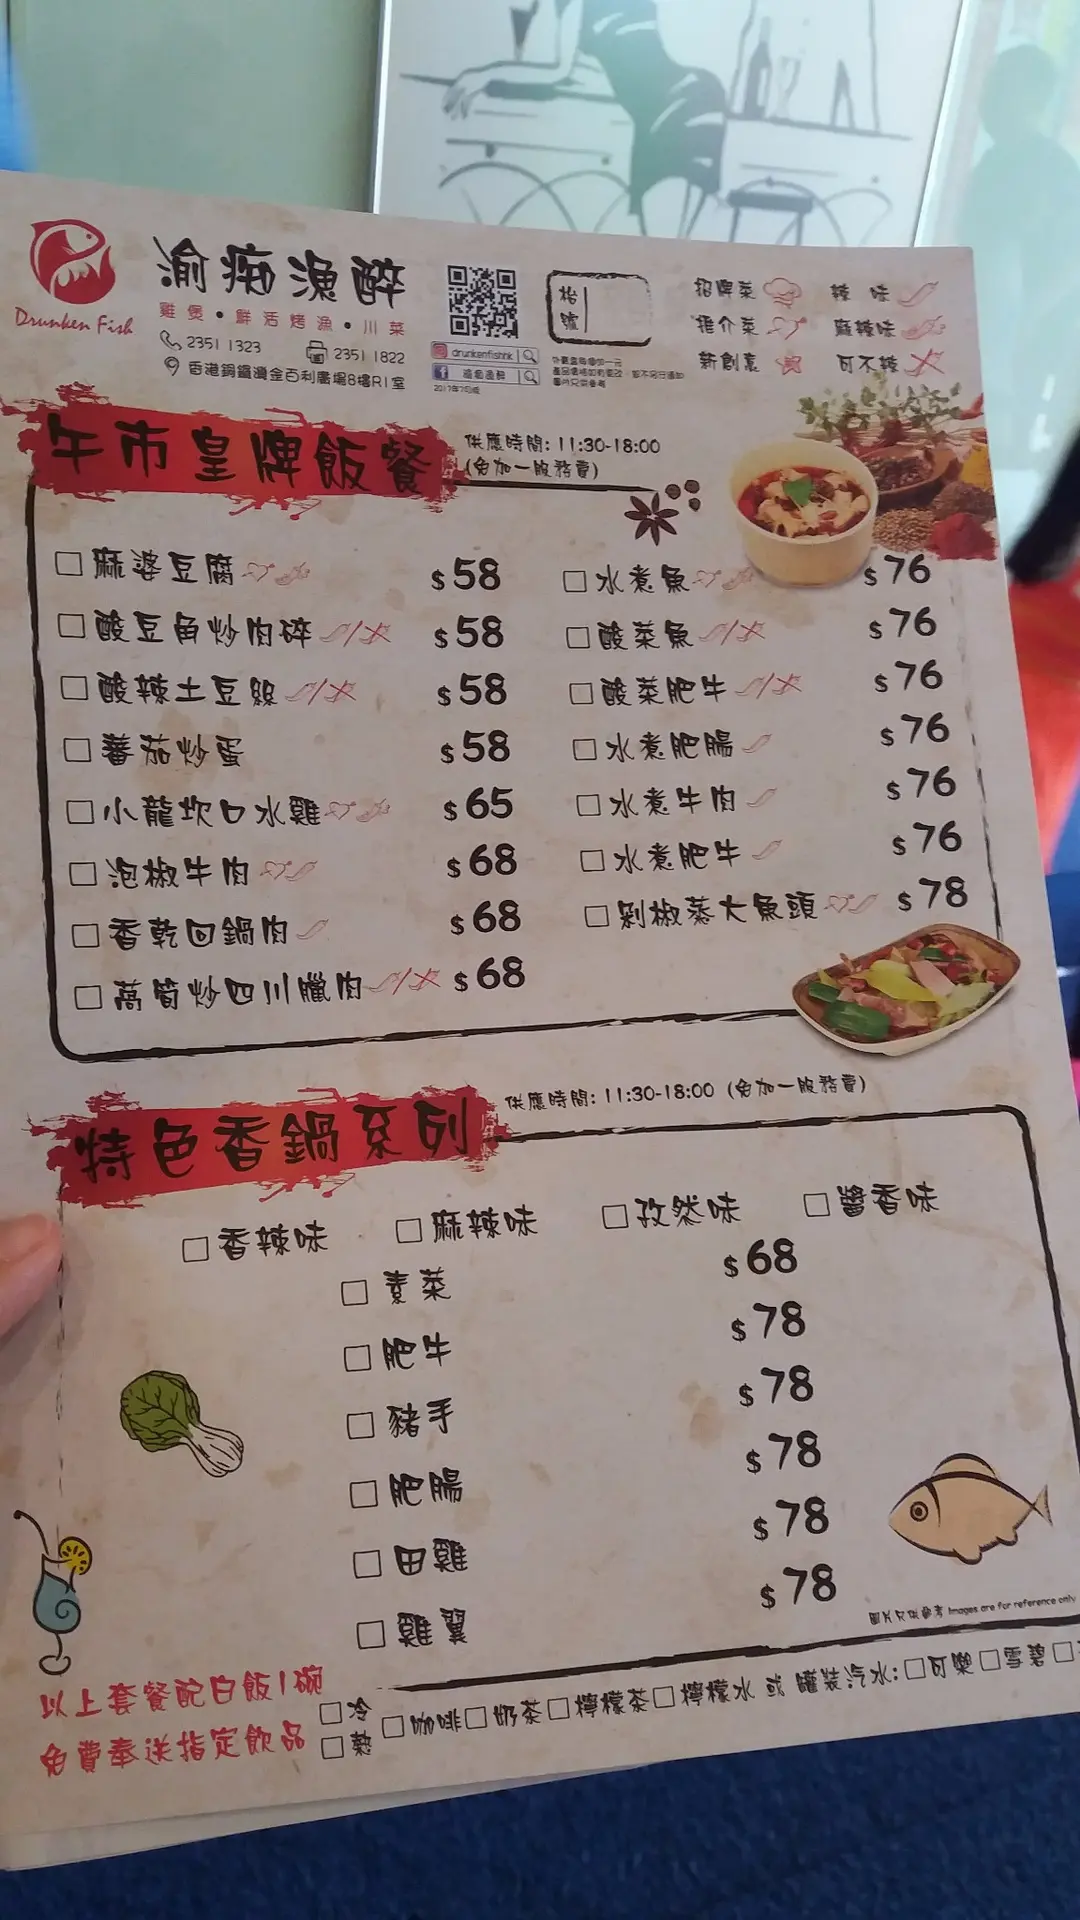 Drunken Fish
渝痴漁醉
雞煲•鮮活烤漁•川菜
2351 1323 2351 1822
香港銅鑼灣金百利廣場8樓R1室
drunkenfishhk
渝痴漁醉
枱號
招牌菜 辣味
推介菜 麻辣味
新創意 可不辣
午市皇牌飯餐
供應時間: 11:30-18:00
(免加一服務費)
麻婆豆腐 $58
酸豆角炒肉碎 $58
酸辣土豆絲 $58
蕃茄炒蛋 $58
小龍坎口水雞 $65
泡椒牛肉 $68
香乾回鍋肉 $68
萵筍炒四川臘肉 $68
水煮魚 $76
酸菜魚 $76
酸菜肥牛 $76
水煮肥腸 $76
水煮牛肉 $76
水煮肥牛 $76
剁椒蒸大魚頭 $78
特色香鍋系列
供應時間: 11:30-18:00 (免加一服務費)
香辣味 麻辣味 孜然味 醬香味
素菜 $68
肥牛 $78
豬手 $78
肥腸 $78
田雞 $78
雞翼 $78
圖片只供參考 Images are for reference only
以上套餐配白飯1碗
免費奉送指定飲品
冷
熱
咖啡 奶茶 檸檬茶 檸檬水 或 罐裝汽水: 可樂 雪碧